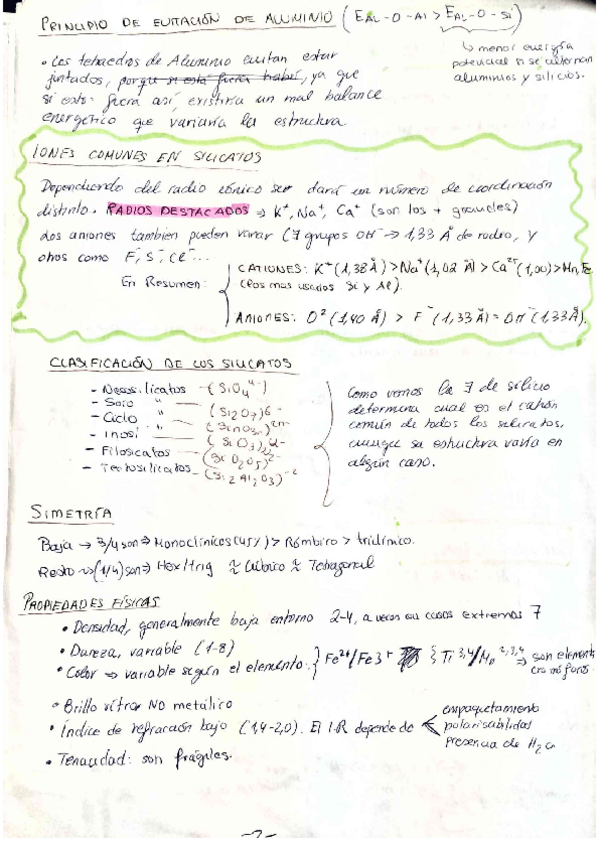 PRINCIPIO DE EVITACIÓN DE ALUMINIO (E Al-O-Al > E Al-O-Si)
↳ menor energía
potencial si se alternan
aluminios y silicios.
• Los tetraedros de Aluminio evitan estar
juntados, porque si esta fuera habrí, ya que
si esto fuera así, existiría un mal balance
energético que variaría la estructura
IONES COMUNES EN SILICATOS
Dependiendo del radio iónico ser dará un número de coordinación
distinto. RADIOS DESTACADOS ⇒ K+, Na+, Ca+ (son los + grandes)
Los aniones tambien pueden variar (∃ grupos OH- → 1,33 Å de radio, y
otros como F-, S-, Cl- ...
En Resumen:
CATIONES: K+ (1,38 Å) > Na+ (1,02 Å) > Ca2+ (1,00) > Mn, Fe
(Los mas usados Si y Al).
ANIONES: O2 (1,40 Å) > F- (1,33 Å) = OH- (1,33 Å).
CLASIFICACIÓN DE LOS SILICATOS
- Nesosilicatos - (SiO4 4-)
- Soro " — (Si2O7)6-
- Ciclo " — (SinO3n)2n-
- Inosi " — (SiO3)2-
- Filosicatos — (Si2O5)2-
- Tectosilicatos - (Si2Al2O3)-2
Como vemos la ∃ de silicio
determina cual es el catión
común de todos los silicatos,
aunque su estructura varía en
algún caso.
SIMETRÍA
Baja → 3/4 son ⇒ Monoclínicos (45%) > Rómbico > triclínico.
Resto → (1/4) son ⇒ Hex/trig ≈ Cúbico ≈ Tetragonal
PROPIEDADES FÍSICAS
• Densidad, generalmente baja entorno 2-4, a veces en casos extremos 7
• Dureza, variable (1-8)
• Color ⇒ variable según el elemento: } Fe2+/Fe3+ { Ti 3,4/Mn 2,3,4 ⇒ son element
cromóforos
• Brillo vítreo NO metálico
• Índice de refracción bajo (1,4-2,0). El I.R depende de
empaquetamiento
polarisabilidad
presencia de H2O
• Tenacidad: son frágiles.